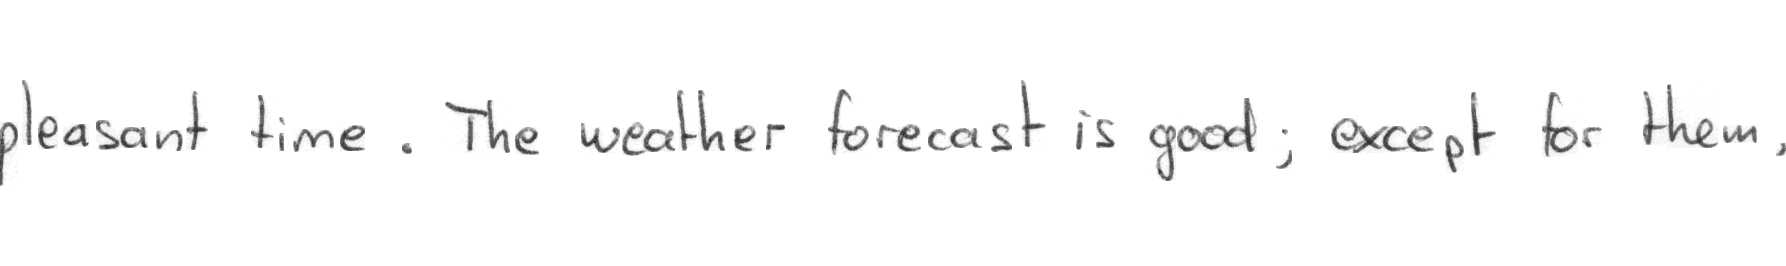 pleasant time. The weather forecast is good; except for them,